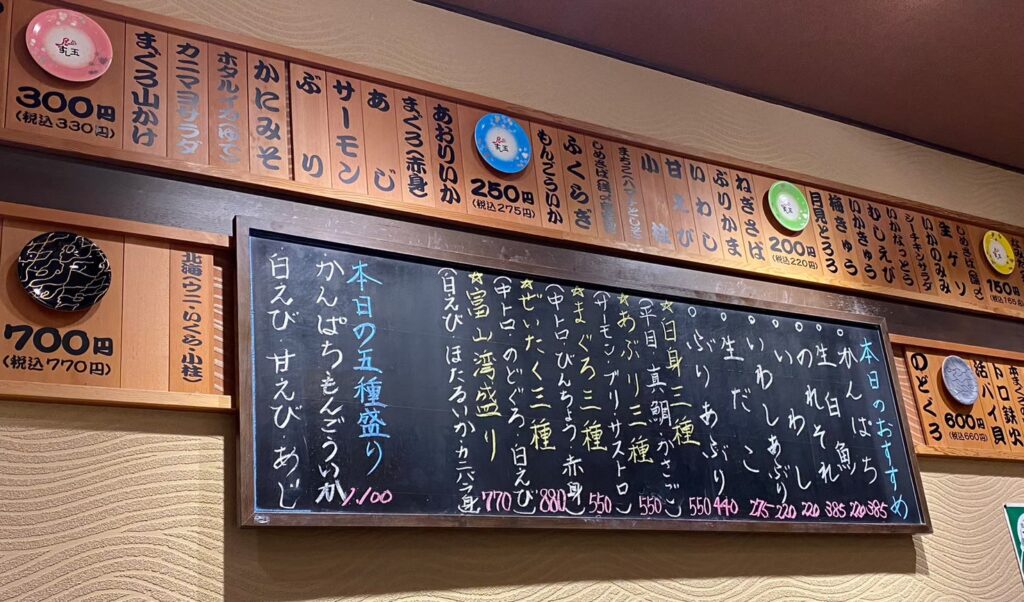 150円
(税込165円)
生ゲソ
いかのみみ
シーチキンサラダ
いかなっとう
むしえび
いかきゅう
梅きゅう
月見とろろ
200円
(税込220円)
ねぎさば
ぶりかま
いわし
甘えび
小柱
ふくらぎ
もんごういか
250円
(税込275円)
あおいいか
まぐろ(赤身
あじ
サーモン
ぶり
かにみそ
ホタルイカゆで
カニマヨサラダ
まぐろ山かけ
300円
(税込330円)
トロ鉄火
活バイ貝
600円
(税込660円)
のどぐろ
本日のおすすめ
○かんぱち 385
○生白魚 220
○のれそれ 385
○いわし 220
○いわしあぶり 220
○生だこ 275
○ぶりあぶり 440
☆白身三種 550
(平目・真鯛・がさご)
☆あぶり三種 550
(サーモン・ブリ・サストロ)
☆まぐろ三種 550
(中トロ・びんちょう・赤身)
☆ぜいたく三種 880
(中トロ・のどぐろ・白えび)
☆富山湾盛り 770
(白えび・ほたるいか・カニバラ身)
本日の五種盛り
かんぱちもんごういか
白えび・甘えび・あじ
1,100
北海(ウニ・いくら・小柱)
700円
(税込770円)